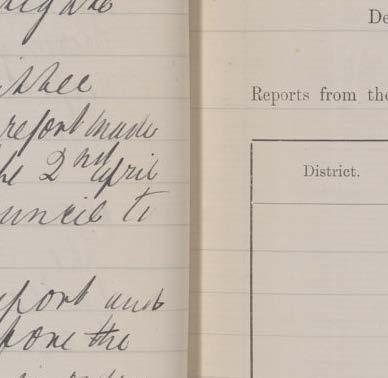 report made
he 2nd april
uncil to
eport and
pone the
De
Reports from the
District.